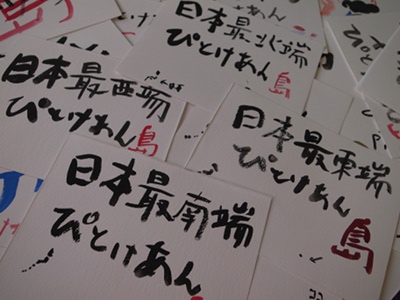 島
日本最北端
ぴとけあん
島
日本最西端
ぴとけあん島
日本最東端
ぴとけあん
島
日本最南端
ぴとけあん